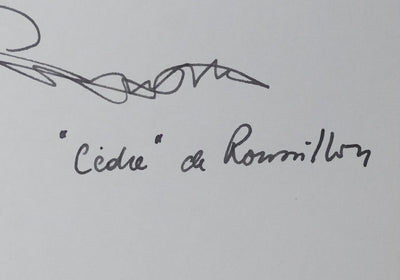 "Cèdre" de Roussillon